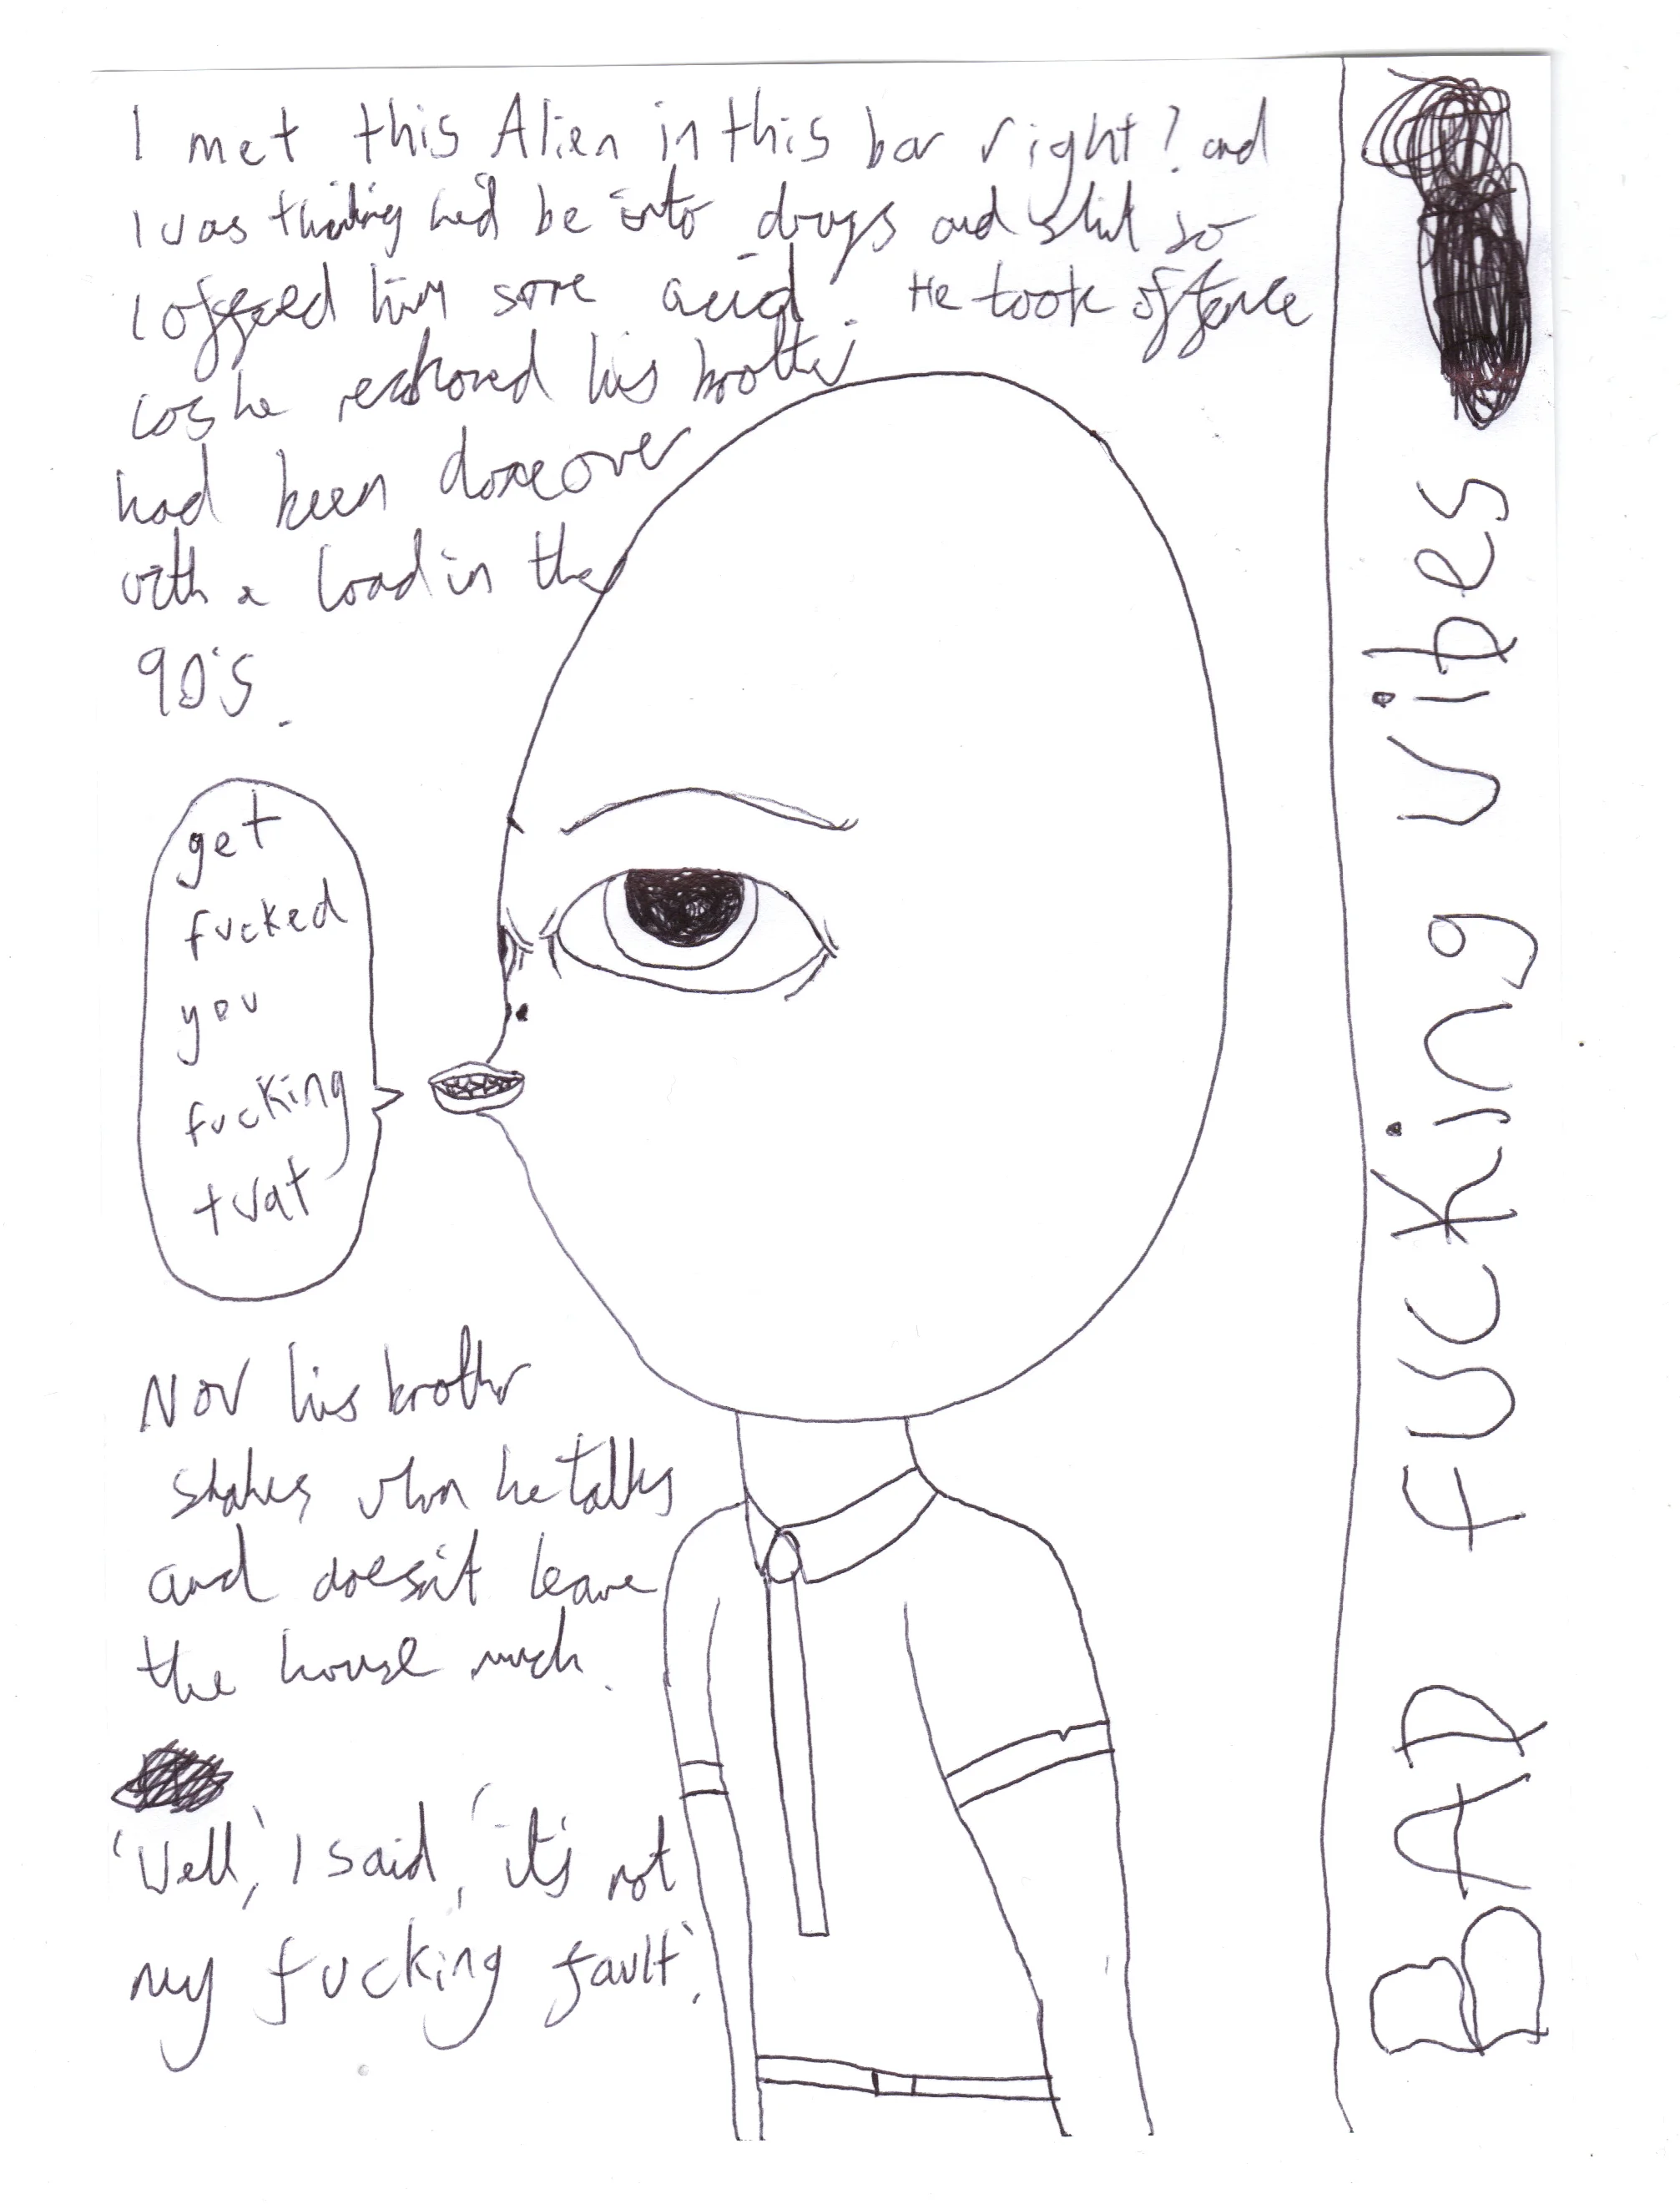 I met this Alien in this bar right? and
I was thinking he'd be into drugs and shit so
I offered him some acid. He took offence
cos he reckoned his brother
had been done over
with a load in the
90's.
get
fucked
you
fucking
twat
Now his brother
shakes when he talks
and doesn't leave
the house much.
'Well', I said, 'it's not
my fucking fault'.
BAD FUCKING VIBES